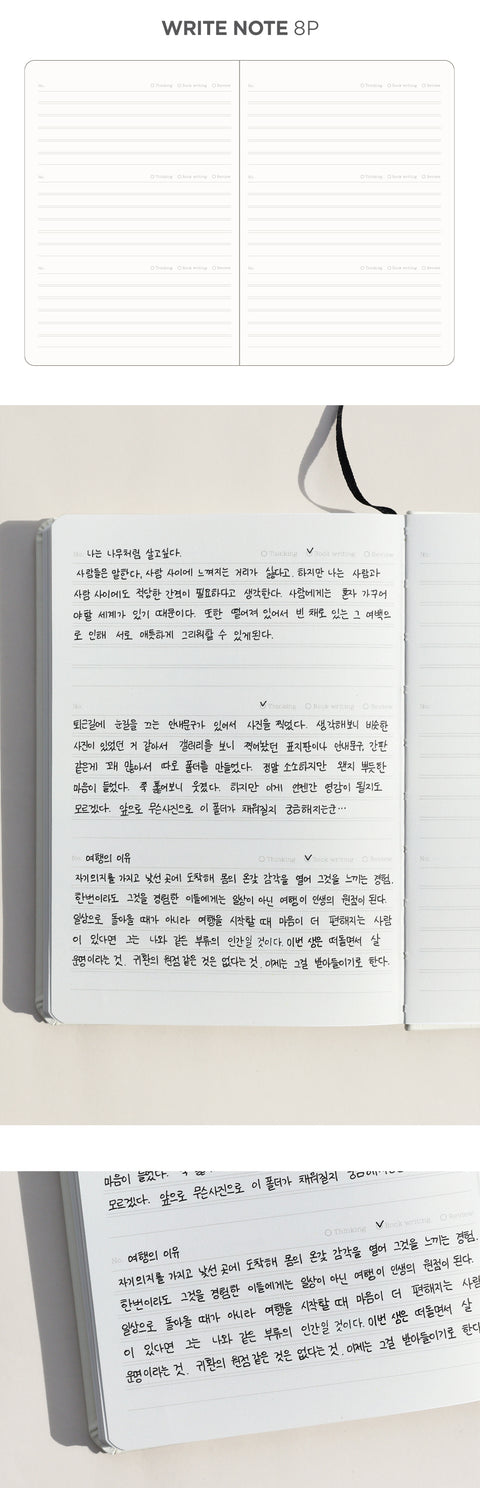 WRITE NOTE 8P
No. Thinking Book writing Review
No. Thinking Book writing Review
No. Thinking Book writing Review
No. Thinking Book writing Review
No. Thinking Book writing Review
No. Thinking Book writing Review
No. 나는 나무처럼 살고싶다. Thinking Book writing Review
사람들은 말한다. 사람 사이에 느껴지는 거리가 싫다고. 하지만 나는 사람과
사람 사이에도 적당한 간격이 필요하다고 생각한다. 사람에게는 혼자 가꾸어
야할 세계가 있기 때문이다. 또한 떨어져 있어서 빈 채로 있는 그 여백으
로 인해 서로 애틋하게 그리워할 수 있게된다.
No. Thinking Book writing Review
퇴근길에 눈길을 끄는 안내문구가 있어서 사진을 찍었다. 생각해보니 비슷한
사진이 있었던 거 같아서 갤러리를 보니 찍어놨던 표지판이나 안내문구, 간판
같은게 꽤 많아서 따로 폴더를 만들었다. 정말 소소하지만 왠지 뿌듯한
마음이 들었다. 쭉 훑어보니 웃겼다. 하지만 이게 언젠간 영감이 될지도
모르겠다. 앞으로 무슨사진으로 이 폴더가 채워질지 궁금해지는군…
No. 여행의 이유 Thinking Book writing Review
자기의지를 가지고 낯선 곳에 도착해 몸의 온갖 감각을 열어 그것을 느끼는 경험.
한번이라도 그것을 경험한 이들에게는 일상이 아닌 여행이 인생의 원점이 된다.
일상으로 돌아올 때가 아니라 여행을 시작할 때 마음이 더 편해지는 사람
이 있다면 그는 나와 같은 부류의 인간일 것이다. 이번 생은 떠돌면서 살
운명이라는 것. 귀환의 원점 같은 것은 없다는 것. 이제는 그걸 받아들이기로 한다.
No.
No.
No.
마음이 들었다.
모르겠다. 앞으로 무슨사진으로 이 폴더가 채워질지 궁금해지는
No. 여행의 이유 Thinking Book writing Review
자기의지를 가지고 낯선 곳에 도착해 몸의 온갖 감각을 열어 그것을 느끼는 경험.
한번이라도 그것을 경험한 이들에게는 일상이 아닌 여행이 인생의 원점이 된다.
일상으로 돌아올 때가 아니라 여행을 시작할 때 마음이 더 편해지는 사람
이 있다면 그는 나와 같은 부류의 인간일 것이다. 이번 생은 떠돌면서 살
운명이라는 것. 귀환의 원점 같은 것은 없다는 것. 이제는 그걸 받아들이기로 한다